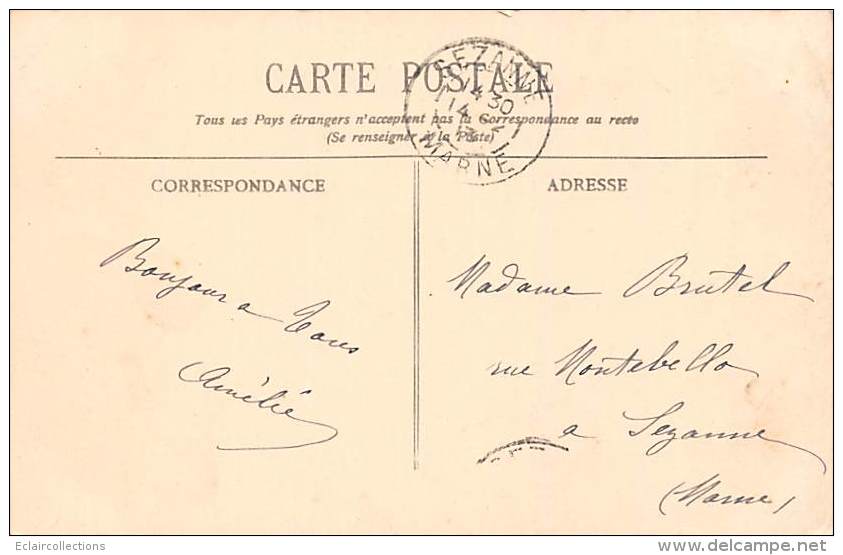 CARTE POSTALE
SEZANNE
14 30
14 2
MARNE
Tous les Pays étrangers n'acceptent pas la Correspondance au recto
(Se renseigner à la Poste)
CORRESPONDANCE
ADRESSE
Bonjour a
Tous
Amélie
Madame Brutel
rue Montebello
a Sezanne
(Marne)
Eclaircollections
www.delcampe.net